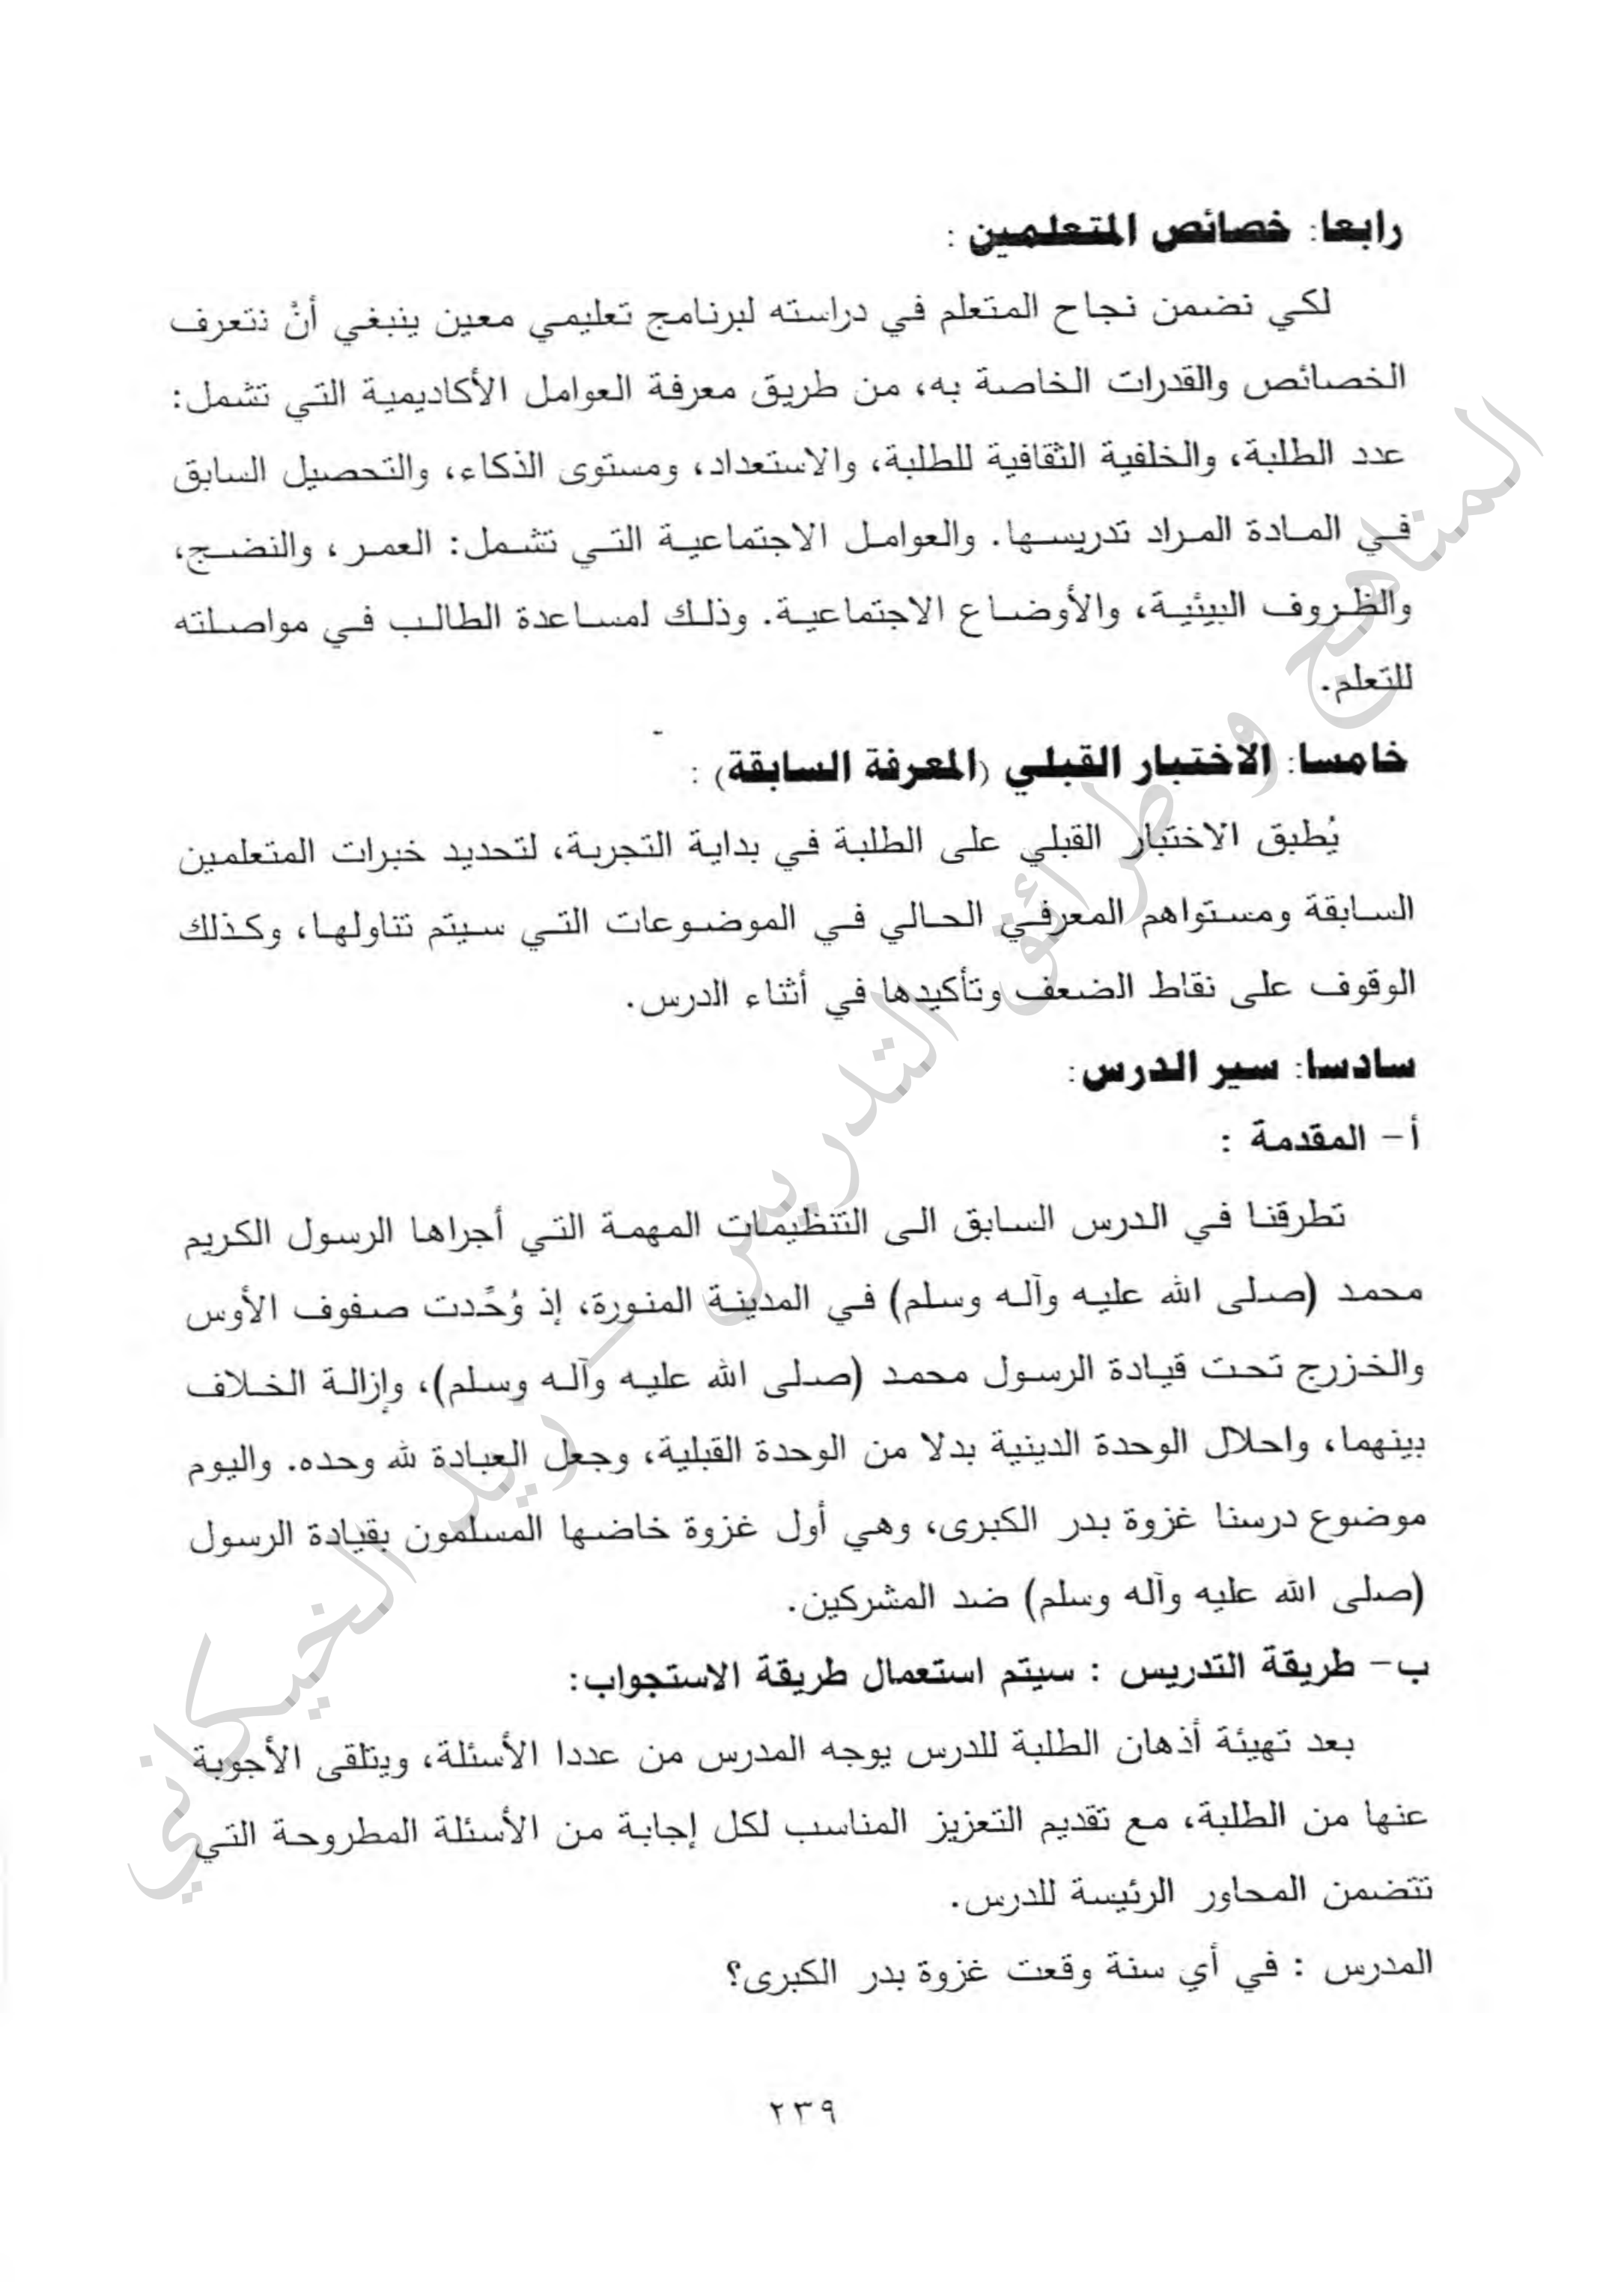 رابعا: خصائص المتعلمين :
لكي نضمن نجاح المتعلم في دراسته لبرنامج تعليمي معين ينبغي أنْ نتعرف
الخصائص والقدرات الخاصة به، من طريق معرفة العوامل الأكاديمية التي تشمل:
عدد الطلبة، والخلفية الثقافية للطلبة، والاستعداد، ومستوى الذكاء، والتحصيل السابق
في المادة المراد تدريسها. والعوامل الاجتماعية التي تشمل: العمر، والنضج،
والظروف البيئية، والأوضاع الاجتماعية. وذلك لمساعدة الطالب في مواصلته
للتعلم.
خامسا: الاختبار القبلي (المعرفة السابقة) :
يُطبق الاختبار القبلي على الطلبة في بداية التجربة، لتحديد خبرات المتعلمين
السابقة ومستواهم المعرفي الحالي في الموضوعات التي سيتم تناولها، وكذلك
الوقوف على نقاط الضعف وتأكيدها في أثناء الدرس.
سادسا: سير الدرس:
أ- المقدمة :
تطرقنا في الدرس السابق الى التنظيمات المهمة التي أجراها الرسول الكريم
محمد (صلى الله عليه وآله وسلم) في المدينة المنورة، إذ وُحِّدت صفوف الأوس
والخزرج تحت قيادة الرسول محمد (صلى الله عليه وآله وسلم)، وإزالة الخلاف
بينهما، واحلال الوحدة الدينية بدلا من الوحدة القبلية، وجعل العبادة لله وحده. واليوم
موضوع درسنا غزوة بدر الكبرى، وهي أول غزوة خاضها المسلمون بقيادة الرسول
(صلى الله عليه وآله وسلم) ضد المشركين.
ب- طريقة التدريس : سيتم استعمال طريقة الاستجواب:
بعد تهيئة أذهان الطلبة للدرس يوجه المدرس من عددا الأسئلة، ويتلقى الأجوبة
عنها من الطلبة، مع تقديم التعزيز المناسب لكل إجابة من الأسئلة المطروحة التي
تتضمن المحاور الرئيسة للدرس.
المدرس : في أي سنة وقعت غزوة بدر الكبرى؟
٢٣٩
المناهج وطرائق التدريس - زيد الخيكاني